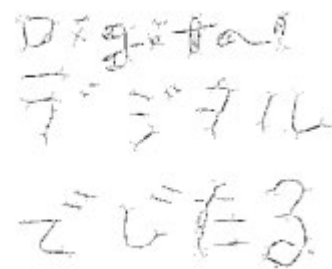 Digital
デジタル
でじたる